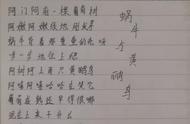 阿门阿前一棵葡萄树
阿嫩阿嫩绿地刚发芽
蜗牛背着那重重的壳呀
一步一步地往上爬
阿树阿上两只黄鹂鸟
阿嘻阿嘻哈哈在笑它
葡萄成熟还早得很哪
现在上来干什么
蜗牛与黄鹂鸟